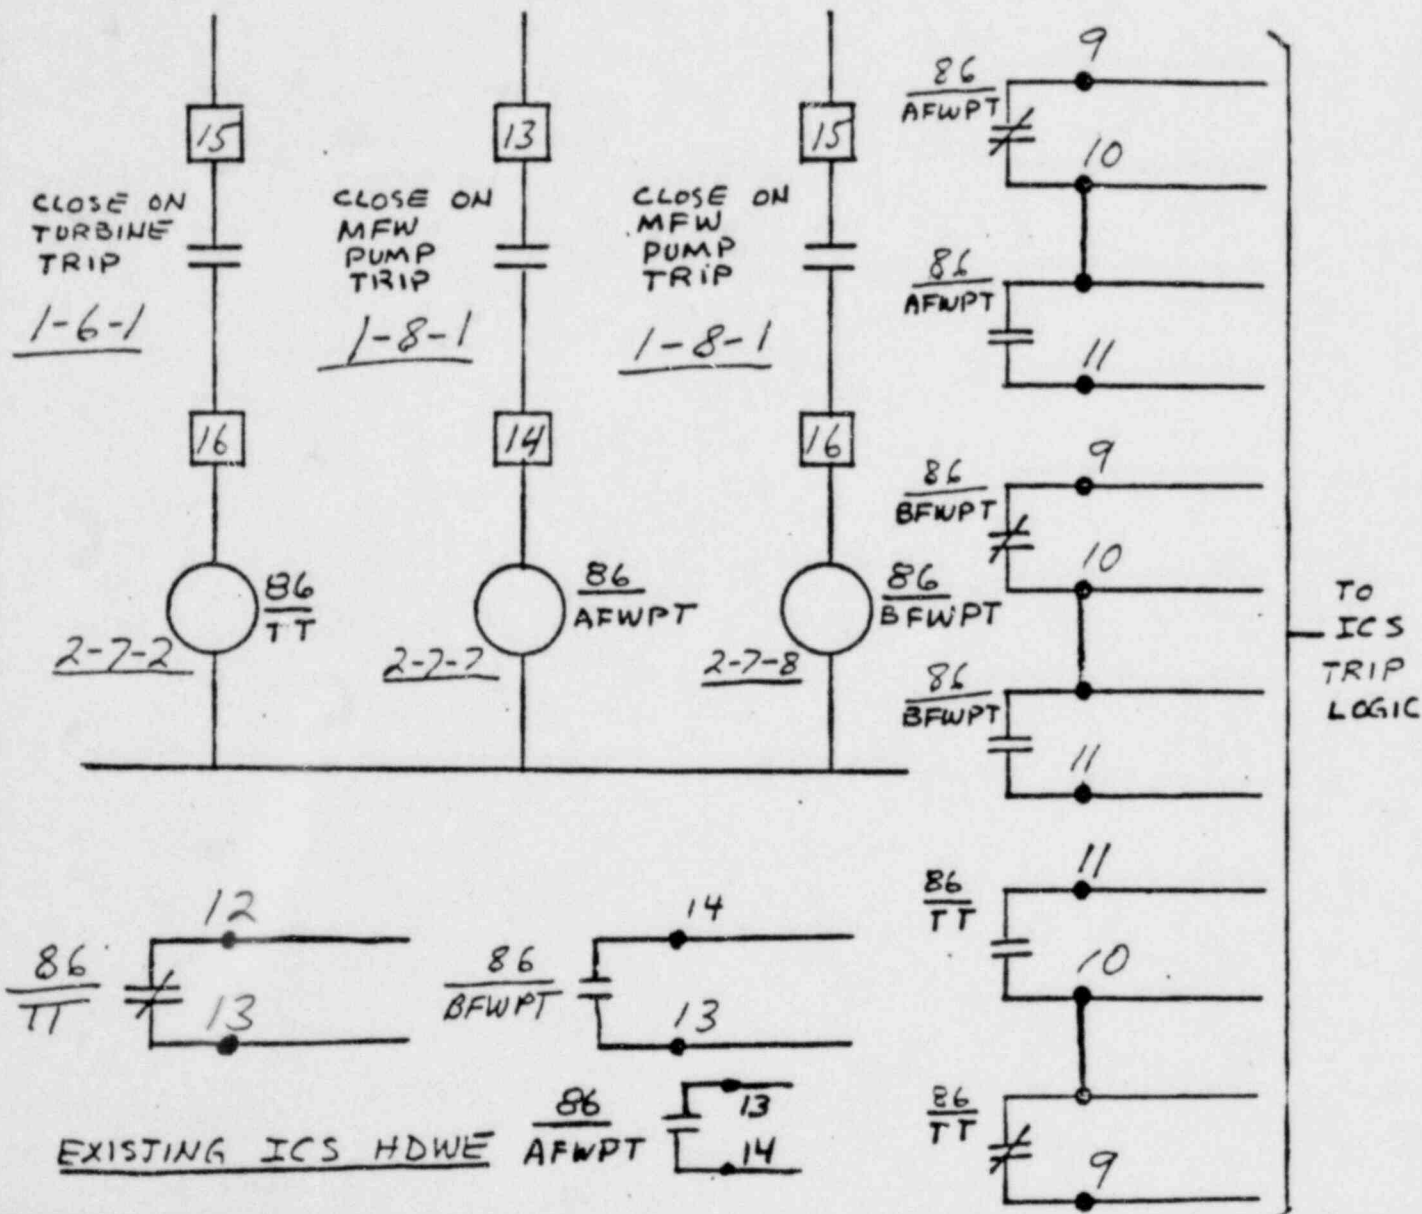 15
CLOSE ON
TURBINE
TRIP
1-6-1
16
86
TT
2-7-2
13
CLOSE ON
MFW
PUMP
TRIP
1-8-1
14
86
AFWPT
2-7-7
15
CLOSE ON
MFW
PUMP
TRIP
1-8-1
16
86
BFWPT
2-7-8
86
AFWPT
9
10
86
AFWPT
11
86
BFWPT
9
10
86
BFWPT
11
86
TT
11
10
86
TT
9
TO
ICS
TRIP
LOGIC
86
TT
12
13
86
BFWPT
14
13
86
AFWPT
13
14
EXISTING ICS HDWE